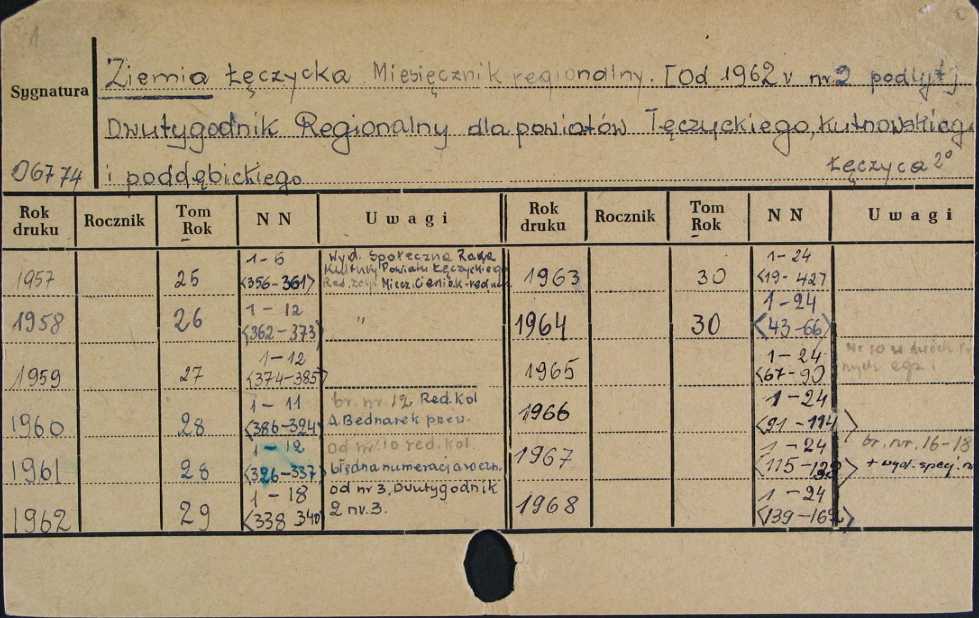 Sygnatura
Ziemia Łęczycka Miesięcznik regionalny. [Od 1962 r nr 2 podtyt]
Dwutygodnik Regionalny dla powiatów Łęczyckiego, Kutnowskiego
06774 i poddębickiego Łęczyca 2°
Rok druku Rocznik Tom Rok NN Uwagi Rok druku Rocznik Tom Rok NN Uwagi
1957 25 1-6 <356-361> Wyd. Społeczna Rada Kultury Powiatu Łęczyckiego
1958 26 1-12 <362-373> "
1959 27 1-12 <374-385>
1960 28 1-11 <386-324> br. nr. 12 Red. Kol A Bednarek
1961 28 1-12 <326-337> od nr. 10 red. kol. błędna numeracja roczn.
1962 29 1-18 <338 340> od nr 3, Dwutygodnik 2 nv. 3.
1963 30 1-24 <19-427>
1964 30 1-24 <43-66>
1965 1-24 <67-90> Nr 10 w dwóch egz.
1966 1-24 <91-114>
1967 1-24 <115-138> br. nr. 16-18 + wyd. specj.
1968 1-24 <139-162>